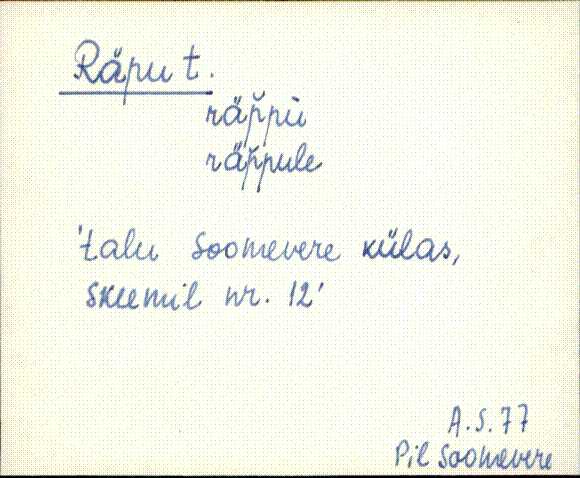 Räpu t.
räp̆pù
räp̆pule
'talu Soomevere külas,
skeemil nr. 12'
A.S.77
Pil Soomevere